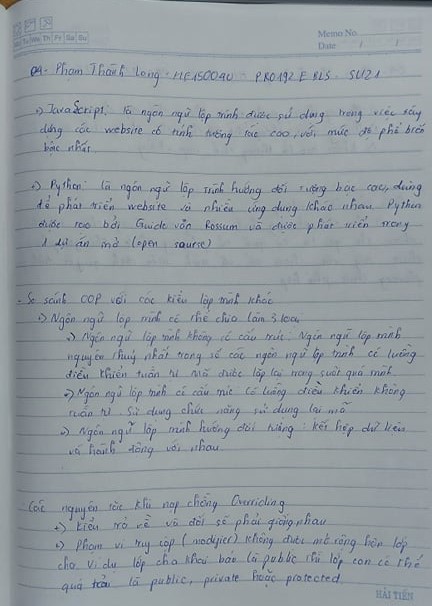 Mo Tu We Th Fr Sa Su
Memo No.
Date / /
04 - Phạm Thành Long - HE150040 PRO192 E BL5 - SU21
+) JavaScript: là ngôn ngữ lập trình được sử dụng trong việc xây
dựng các website có tính tương tác cao, với mức độ phổ biến
bậc nhất.
+) Python: là ngôn ngữ lập trình hướng đối tượng bậc cao, dùng
để phát triển website và nhiều ứng dụng khác nhau. Python
được tạo bởi Guido vốn Rossum và được phát triển trong
1 dự án mở (open sourse)
- So sánh OOP với các kiểu lập trình khác
+) Ngôn ngữ lập trình có thể chia làm 3 loại
+) Ngôn ngữ lập trình không có cấu trúc: Ngôn ngữ lập trình
nguyên thuỷ nhất trong số các ngôn ngữ lập trình có luồng
điều khiển tuần tự. Mã được lặp lại trong suốt quá trình.
+) Ngôn ngữ lập trình có cấu trúc: Có luồng điều khiển không
tuần tự. Sử dụng chức năng sử dụng lại mã
+) Ngôn ngữ lập trình hướng đối tượng: kết hợp dữ liệu
và hành động với nhau
Các nguyên tắc khi nạp chồng Overriding
+) Kiểu trả về và đối số phải giống nhau
+) Phạm vi truy cập (modifier) không được mở rộng hơn lớp
cha. Ví dụ lớp cha khai báo là public thì lớp con có thể
quá là public, private hoặc protected
HẢI TIẾN